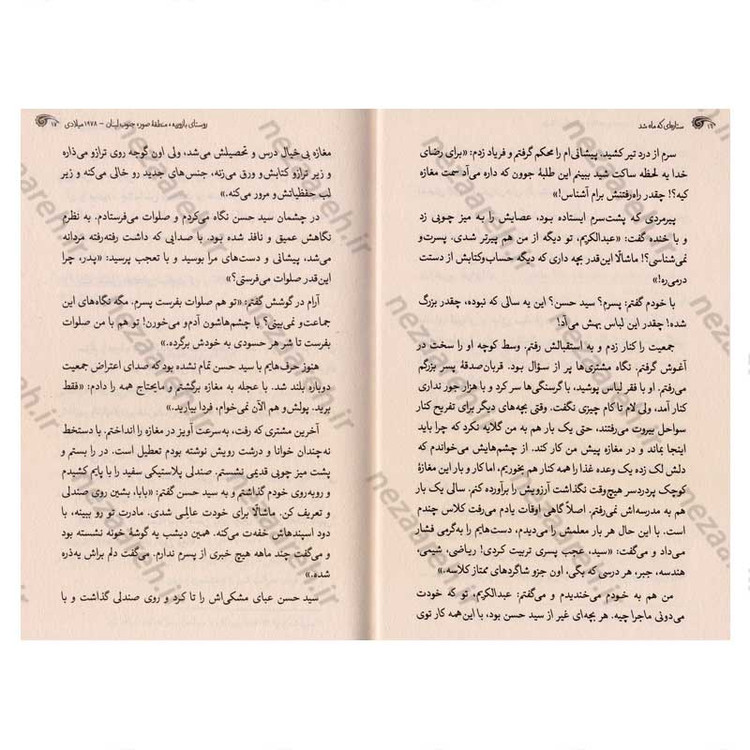 ۱۶ ستاره‌ای که ماه شد
سرم از درد تیر کشید. پیشانی‌ام را محکم گرفتم و فریاد زدم: «برای رضای
خدا یه لحظه ساکت شید ببینم این طلبهٔ جوون که داره می‌آد سمت مغازه
کیه؟! چقدر راه‌رفتنش برام آشناس!»
پیرمردی که پشت‌سرم ایستاده بود، عصایش را به میز چوبی زد
و با خنده گفت: «عبدالکریم، تو دیگه از من هم پیرتر شدی. پسرت‌و
نمی‌شناسی؟! ماشالّا این‌قدر بچه داری که دیگه حساب‌وکتابش از دستت
درمی‌ره!»
با خودم گفتم: پسرم؟ سید حسن؟ این یه سالی که نبوده، چقدر بزرگ
شده! چقدر این لباس بهش می‌آد!
جمعیت را کنار زدم و به استقبالش رفتم. وسط کوچه او را سخت در
آغوش گرفتم. نگاه مشتری‌ها پر از سؤال بود. قربان‌صدقهٔ پسر بزرگم
می‌رفتم. او با فقر لباس پوشید، با گرسنگی‌ها سر کرد و با هزار جور نداری
کنار آمد، ولی لام تا کام چیزی نگفت. وقتی بچه‌های دیگر برای تفریح کنار
سواحل بیروت می‌رفتند، حتی یک بار هم به من گلایه نکرد که چرا باید
اینجا بماند و در مغازه پیش من کار کند. از چشم‌هایش می‌خواندم که
دلش لک زده یک وعده غذا را با همه کنار هم بخوریم، اما کار و بار این مغازهٔ
کوچک پردردسر هیچ‌وقت نگذاشت آرزویش را برآورده کنم. سالی یک بار
هم به مدرسه‌اش نمی‌رفتم. اصلاً گاهی اوقات یادم می‌رفت کلاس چندم
است. با این حال هر بار معلمش را می‌دیدم، دست‌هایم را به‌گرمی فشار
می‌داد و می‌گفت: «سید، عجب پسری تربیت کردی! ریاضی، شیمی،
هندسه، جبر، هر درسی که بگی، اون جزو شاگردهای ممتاز کلاسه.»
من هم به خودم می‌خندیدم و می‌گفتم: عبدالکریم، تو که خودت
می‌دونی ماجرا چیه. هر بچه‌ای غیر از سید حسن بود، با این همه کار توی
روستای بازوریه، منطقهٔ صور، جنوب لبنان – ۱۹۷۸ میلادی ۱۷
مغازه بی خیال درس و تحصیلش می‌شد، ولی اون گوجه روی ترازو می‌ذاره
و زیر ترازو کتابش و ورق می‌زنه، جنس‌های جدید رو خالی می‌کنه و زیر
لب حفظیاتش‌و مرور می‌کنه.»
در چشمان سید حسن نگاه می‌کردم و صلوات می‌فرستادم. به نظرم
نگاهش عمیق و نافذ شده بود. با صدایی که داشت رفته‌رفته مردانه
می‌شد، پیشانی و دست‌های مرا بوسید و با تعجب پرسید: «پدر، چرا
این‌قدر صلوات می‌فرستی؟»
آرام در گوشش گفتم: «تو هم صلوات بفرست پسرم. مگه نگاه‌های این
جماعت‌و نمی‌بینی؟ با چشم‌هاشون آدم‌و می‌خورن! تو هم با من صلوات
بفرست تا شر هر حسودی به خودش برگرده.»
هنوز حرف‌هایم با سید حسن تمام نشده بود که صدای اعتراض جمعیت
دوباره بلند شد. با عجله به مغازه برگشتم و مایحتاج همه را دادم: «فقط
برید. پولش‌و هم الآن نمی‌خوام، فردا بیارید.»
آخرین مشتری که رفت، به‌سرعت آویز در مغازه را انداختم. با دستخط
نه‌چندان خوانا و درشت رویش نوشته بودم تعطیل است. در را بستم و
پشت میز چوبی قدیمی نشستم. صندلی پلاستیکی سفید را با پایم کشیدم
و روبه‌روی خودم گذاشتم و به سید حسن گفتم: «بابا، بشین روی صندلی
و تعریف کن. ماشالّا برای خودت عالمی شدی. مادرت تو رو ببینه، با
دود اسپندهاش خفه‌ت می‌کنه. همین دیشب یه گوشهٔ خونه نشسته بود
و می‌گفت چند ماهه هیچ خبری از پسرم ندارم. می‌گفت دلم براش یه‌ذره
شده.»
سید حسن عبای مشکی‌اش را تا کرد و روی صندلی گذاشت و با
nezaareh.ir